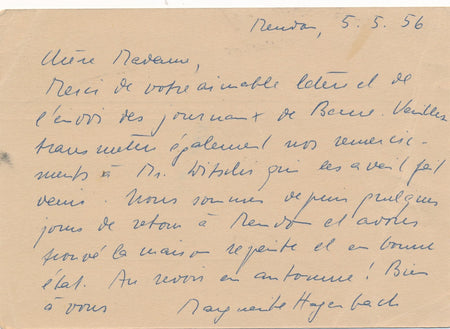 Meudon, 5. 5. 56
Chère Madame,
Merci de votre aimable lettre et de
l'envoi des journaux de Berne. Veuillez
transmettre également nos remerci-
ments à Mr. Witschi qui les avait fait
venir. Nous sommes depuis quelques
jours de retour à Meudon et avons
trouvé la maison repeinte et en bonne
état. Au revoir en automne! Bien
à vous Marguerite Hagenbach